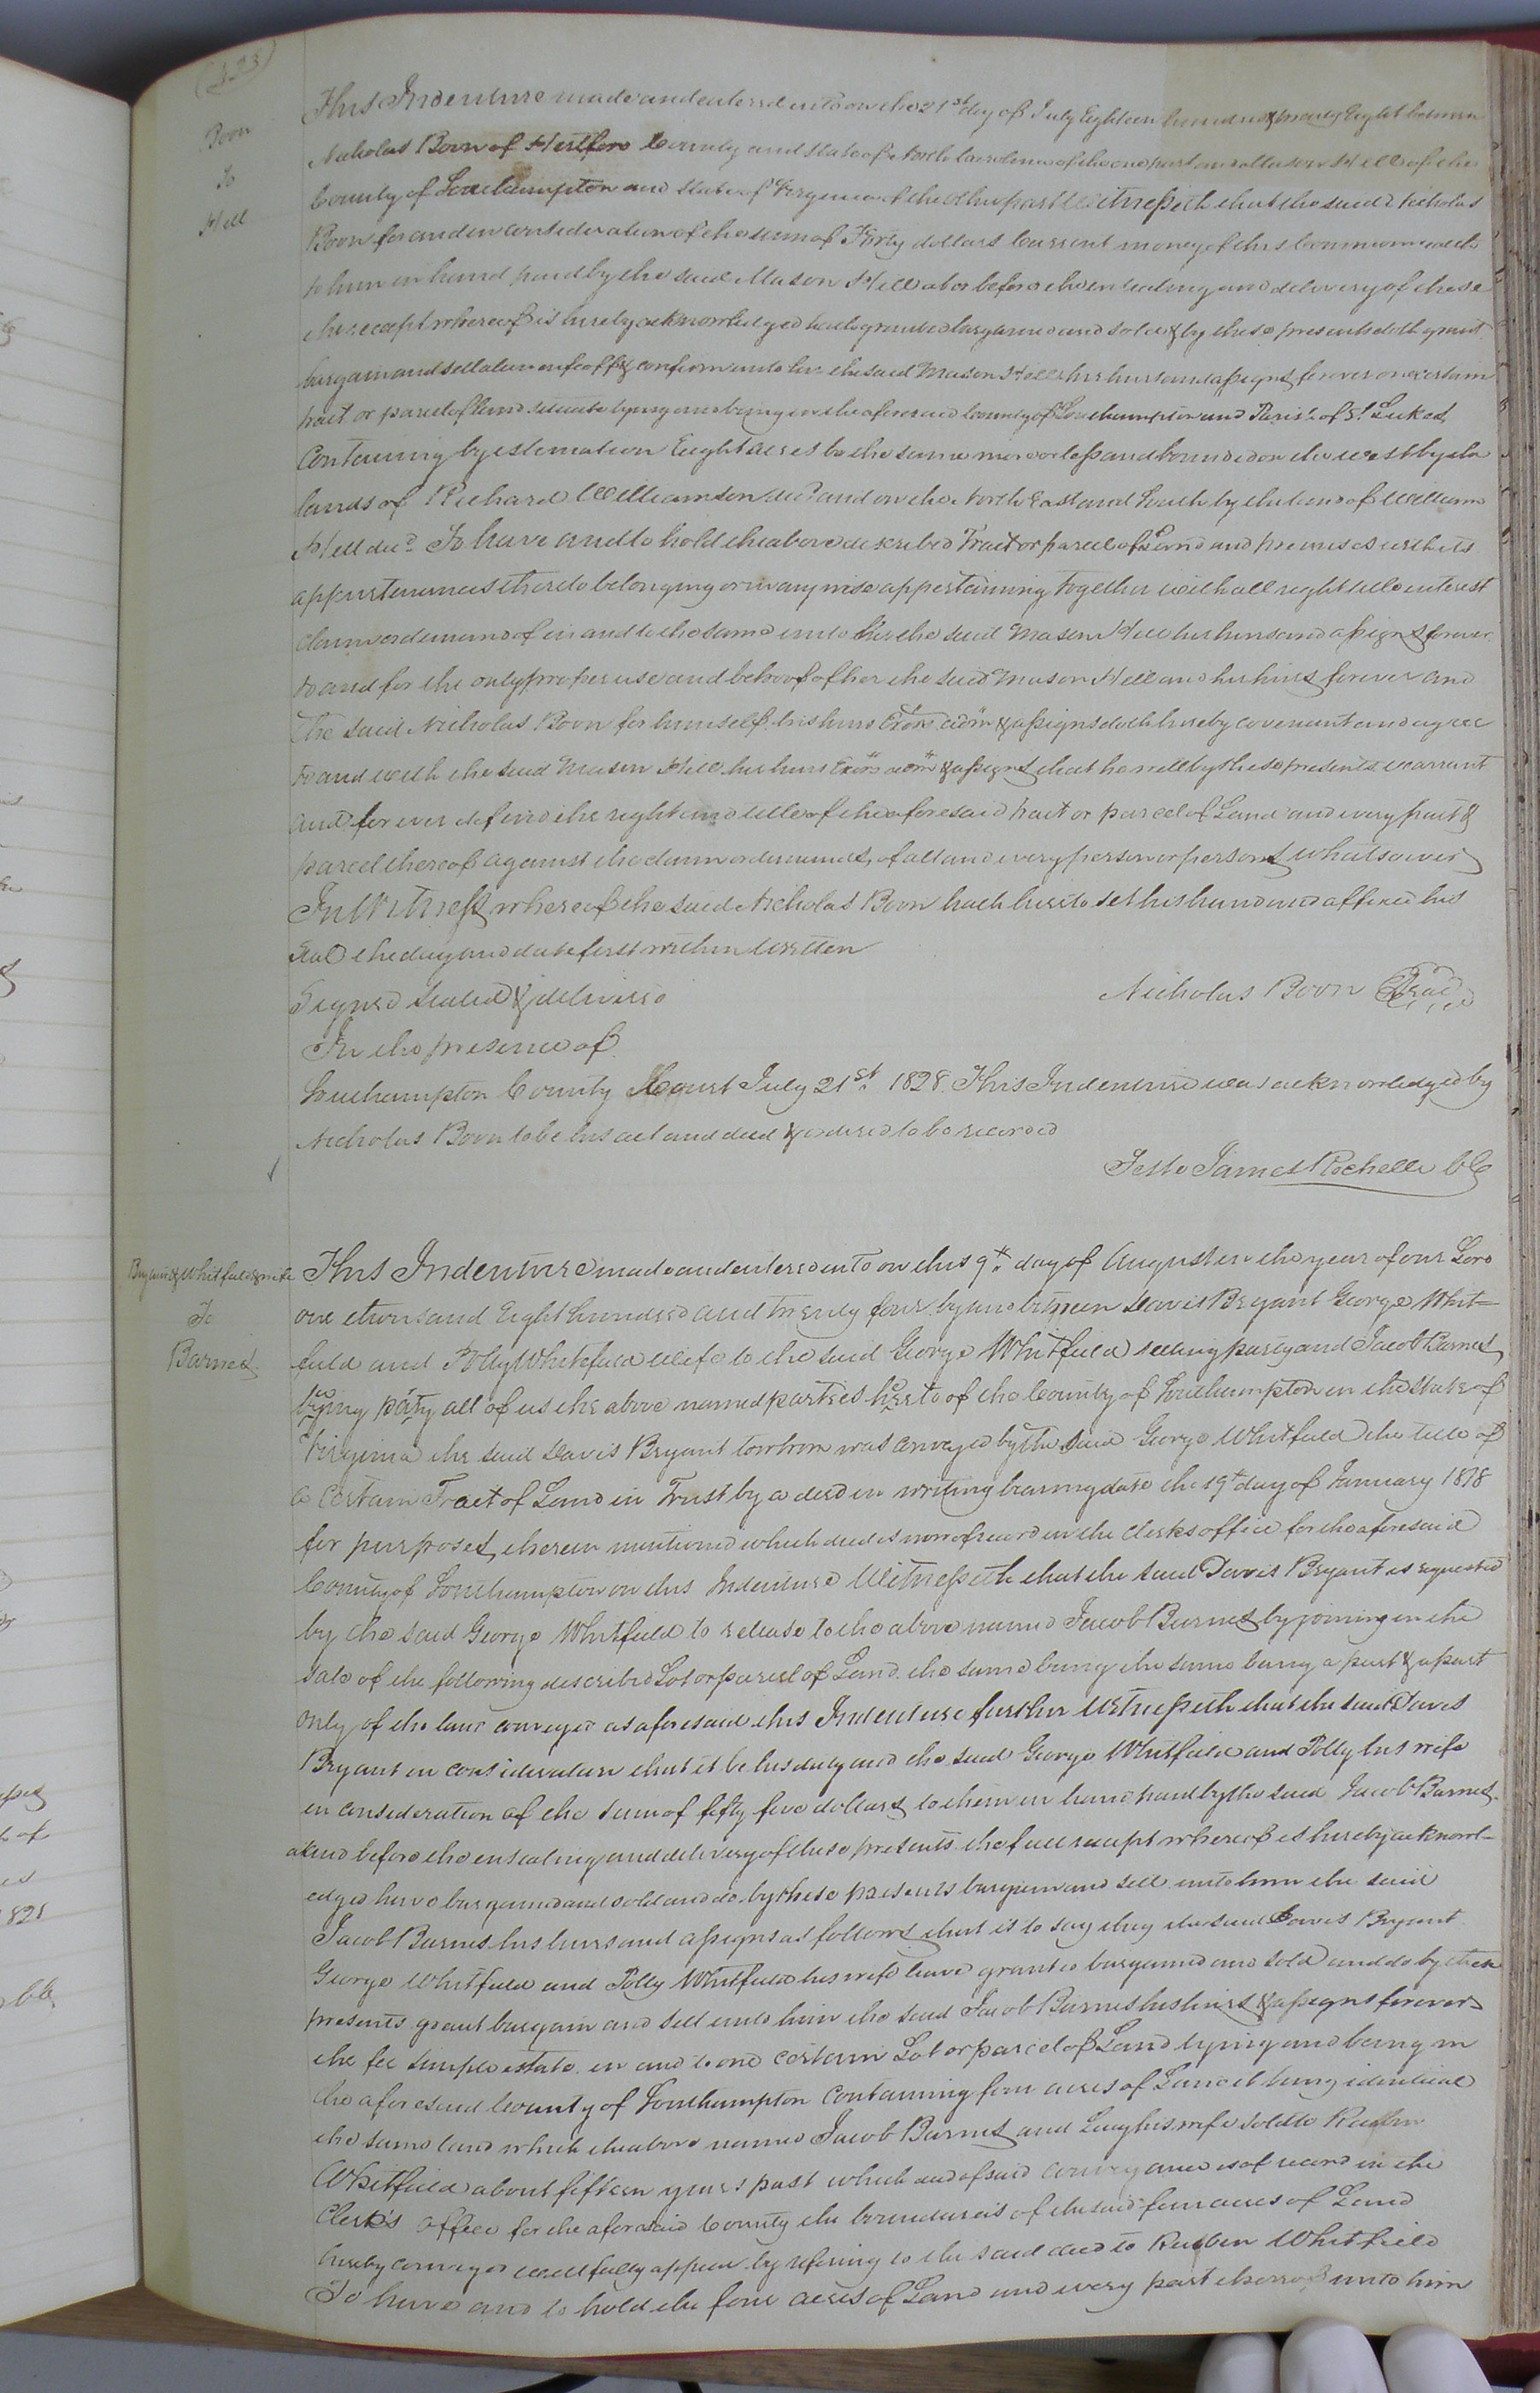 (423)
Boon
To
Hill
This Indenture made and entered into on the 21st day of July Eighteen hundred & twenty Eight between
Nicholas Boon of Hertford County and State of North Carolina of the one part and Mason Hill of the
County of Southampton and State of Virginia of the other part Witnesseth that the said Nicholas
Boon for and in consideration of the sum of Forty dollars Current money of this Commonwealth
to him in hand paid by the said Mason Hill at or before the ensealing and delivery of these
the receipt whereof is hereby acknowledged hath granted bargained and sold & by these presents doth grant
bargain and sell alien enfeoff & confirm unto her the said Mason Hill her heirs and assigns forever one certain
tract or parcel of land situate lying and being in the aforesaid County of Southampton and Parish of St. Lukes
Containing by estimation Eight acres be the same more or less and bounded on the west by the
lands of Richard Williamson decd and on the North East and South by the land of William
Hill decd To have and to hold the above described Tract or parcel of Land and premises with its
appurtenances thereto belonging or in any wise appertaining together with all right title interest
claim or demand of in and to the same unto her the said Mason Hill her heirs and assigns forever
to and for the only proper use and behoof of her the said Mason Hill and her heirs forever and
The said Nicholas Boon for himself his heirs Exors adm & assigns doth hereby covenant and agree
to and with the said Mason Hill her heirs Exors adm & assigns that he will by these presents warrant
and forever defend the right and title of the aforesaid tract or parcel of Land and every part &
parcel thereof against the claim or demands of all and every person or persons whatsoever
In Witness whereof the said Nicholas Boon hath hereto set his hand and affixed his
Seal the day and date first within written
Signed Sealed & delivered
Nicholas Boon Seal
In the presence of
Southampton County Court July 21st 1828. This Indenture was acknowledged by
Nicholas Boon to be his act and deed & ordered to be recorded
Teste James Rochelle CC
Bryant & Whitfield & wife
To
Barnes
This Indenture made and entered into on this 9th day of August in the year of our Lord
one thousand Eight hundred and twenty four by and between Davis Bryant George Whit=
field and Polly Whitefield wife to the said George Whitfield selling party and Jacob Barnes
buying party all of us the above named parties hereto of the County of Southampton in the State of
Virginia the said Davis Bryant to whom was conveyed by the said George Whitfield the title of
a certain Tract of Land in Trust by a deed in writing bearing date the 19th day of January 1818
for purposes therein mentioned which deed is now of record in the clerks office for the aforesaid
County of Southampton on this Indenture Witnesseth that the said Davis Bryant as requested
by the said George Whitfield to release to the above named Jacob Barnes by joining in the
sale of the following described Lot or parcel of Land. the same being the same being a part & a part
only of the land conveyed as aforesaid this Indenture further Witnesseth that the said Davis
Bryant in consideration that it be his duty and the said George Whitfield and Polly his wife
in consideration of the sum of fifty five dollars to them in hand paid by the said Jacob Barnes
at and before the ensealing and delivery of these presents the full receipt whereof is hereby acknowl=
edged have bargained and sold and do by these presents bargain and sell unto him the said
Jacob Barnes his heirs and assigns as follows that is to say they the said Davis Bryant
George Whitfield and Polly Whitfield his wife have granted bargained and sold and do by these
presents grant bargain and sell unto him the said Jacob Barnes his heirs & assigns forever
the fee simple estate in and to one certain Lot or parcel of Land lying and being in
the aforesaid County of Southampton Containing four acres of Land it being identical
the same land which the above named Jacob Barnes and his wife sold to Reuben
Whitfield about fifteen years past which deed of said conveyance is of record in the
Clerk's office for the aforesaid County the boundaries of the said four acres of Land
hereby conveyed will fully appear by refering to the said deed to Reuben Whitfield
To have and to hold the four acres of Land and every part thereof unto him